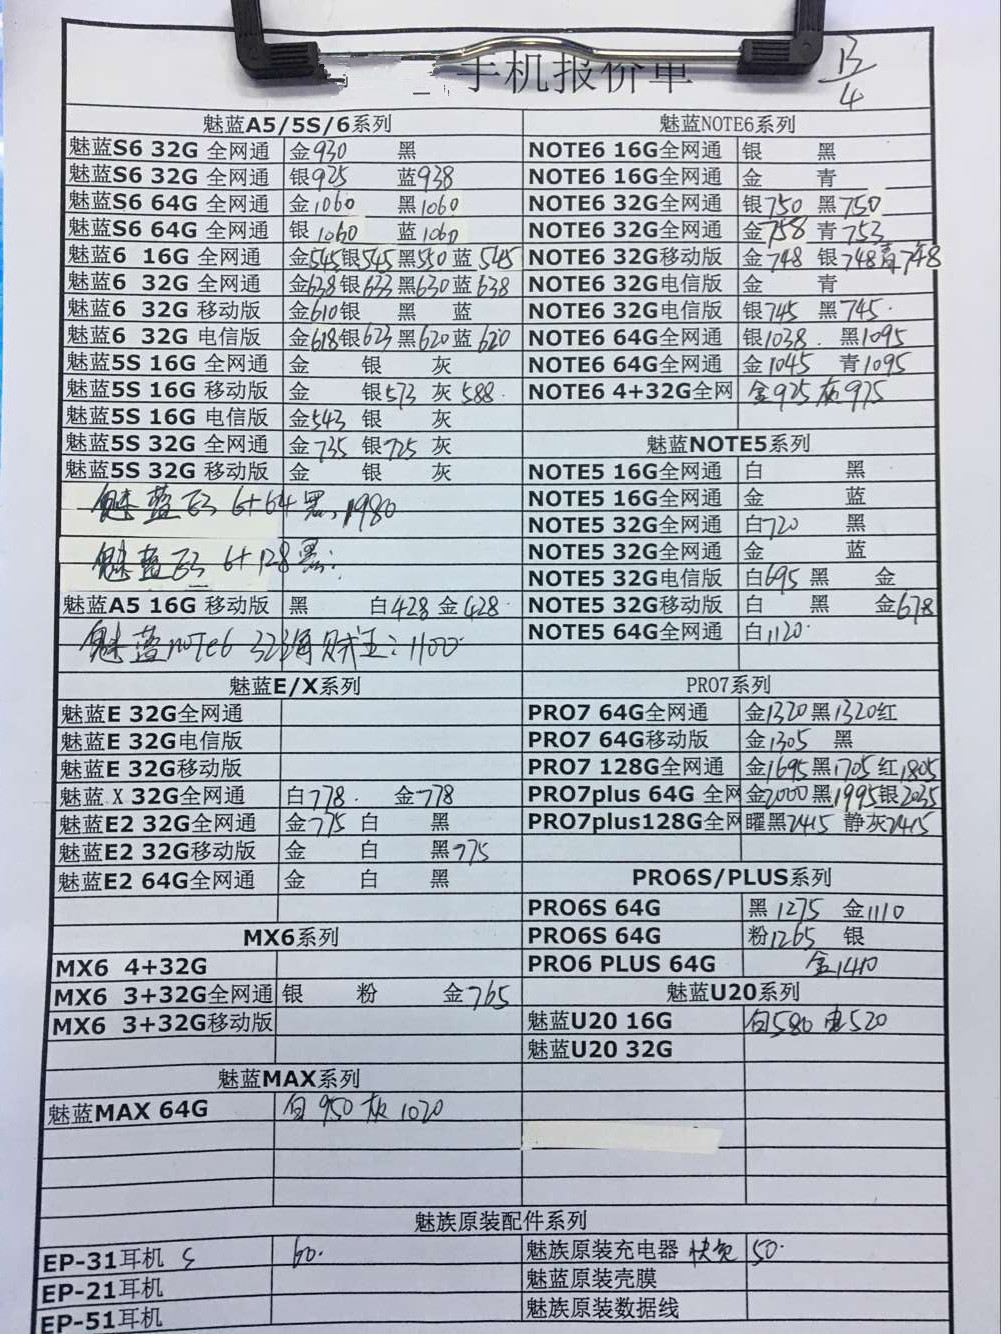 手机报价单
13/4
魅蓝A5/5S/6系列
魅蓝S6 32G 全网通 金930 黑
魅蓝S6 32G 全网通 银925 蓝938
魅蓝S6 64G 全网通 金1060 黑1060
魅蓝S6 64G 全网通 银1060 蓝1060
魅蓝6 16G 全网通 金545银545黑550蓝545
魅蓝6 32G 全网通 金638银633黑630蓝638
魅蓝6 32G 移动版 金610银 黑 蓝
魅蓝6 32G 电信版 金618银623黑620蓝620
魅蓝5S 16G 全网通 金 银 灰
魅蓝5S 16G 移动版 金 银573 灰588
魅蓝5S 16G 电信版 金543 银 灰
魅蓝5S 32G 全网通 金735 银725 灰
魅蓝5S 32G 移动版 金 银 灰
魅蓝E3 6+64黑:1980
魅蓝E3 6+128黑:
魅蓝A5 16G 移动版 黑 白428 金428
魅蓝note6 32 :1100
魅蓝E/X系列
魅蓝E 32G全网通
魅蓝E 32G电信版
魅蓝E 32G移动版
魅蓝X 32G全网通 白778 金778
魅蓝E2 32G全网通 金775 白 黑
魅蓝E2 32G移动版 金 白 黑775
魅蓝E2 64G全网通 金 白 黑
MX6系列
MX6 4+32G
MX6 3+32G全网通 银 粉 金765
MX6 3+32G移动版
魅蓝MAX系列
魅蓝MAX 64G 白950 灰1020
魅蓝NOTE6系列
NOTE6 16G全网通 银 黑
NOTE6 16G全网通 金 青
NOTE6 32G全网通 银750 黑750
NOTE6 32G全网通 金758 青753
NOTE6 32G移动版 金748 银748青748
NOTE6 32G电信版 金 青
NOTE6 32G电信版 银745 黑745
NOTE6 64G全网通 银1038 黑1095
NOTE6 64G全网通 金1045 青1095
NOTE6 4+32G全网 金925 灰975
魅蓝NOTE5系列
NOTE5 16G全网通 白 黑
NOTE5 16G全网通 金 蓝
NOTE5 32G全网通 白720 黑
NOTE5 32G全网通 金 蓝
NOTE5 32G电信版 白695 黑 金
NOTE5 32G移动版 白 黑 金678
NOTE5 64G全网通 白1120
PRO7系列
PRO7 64G全网通 金1320黑1320红
PRO7 64G移动版 金1305 黑
PRO7 128G全网通 金1695黑1705红1805
PRO7plus 64G 全网 金2000黑1995银2035
PRO7plus128G全网 曜黑2415 静灰2415
PRO6S/PLUS系列
PRO6S 64G 黑1275 金1110
PRO6S 64G 粉1265 银
PRO6 PLUS 64G 金1410
魅蓝U20系列
魅蓝U20 16G 白580 电520
魅蓝U20 32G
魅族原装配件系列
EP-31耳机 S 60.
EP-21耳机
EP-51耳机
魅族原装充电器 快充 50.
魅蓝原装壳膜
魅族原装数据线